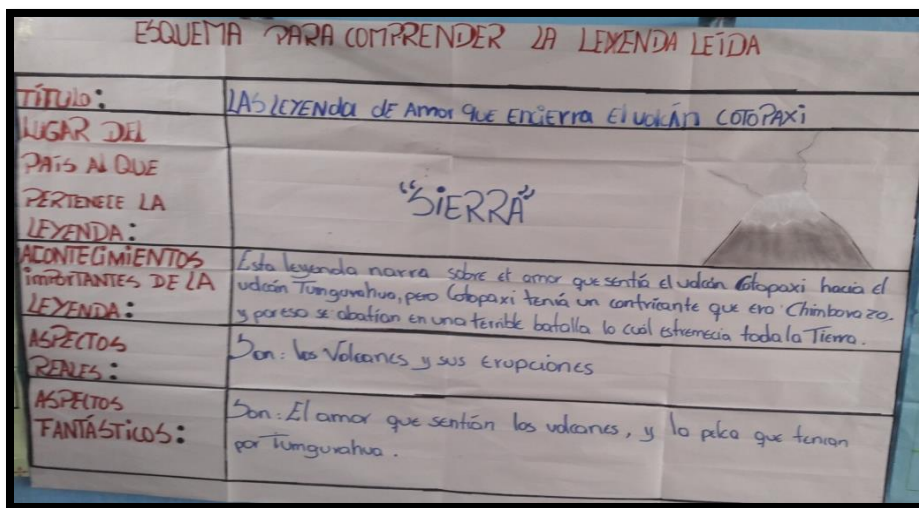 ESQUEMA PARA COMPRENDER LA LEYENDA LEÍDA
TÍTULO:
LAS LEYENDA DE Amor QUE ENCIErra El volcÁn COTOPAXi
LUGAR DEL
PAÍS AL QUE
PERTENECE LA
LEYENDA:
"SiERRA"
ACONTECIMIENTOS
IMPORTANTES DE LA
LEYENDA:
Esta leyenda narra sobre el amor que sentía el volcán Cotopaxi hacia el
volcán Tungurahua, pero Cotopaxi tenía un contricante que era Chimborazo.
y por eso se abatían en una terrible batalla lo cuál estremecia toda la Tierra.
ASPECTOS
REALES:
Son: los Volcanes y sus Erupciones
ASPECTOS
FANTÁSTICOS:
Son: El amor que sentían los volcanes, y la pelea que tenian
por Tumgurahua.